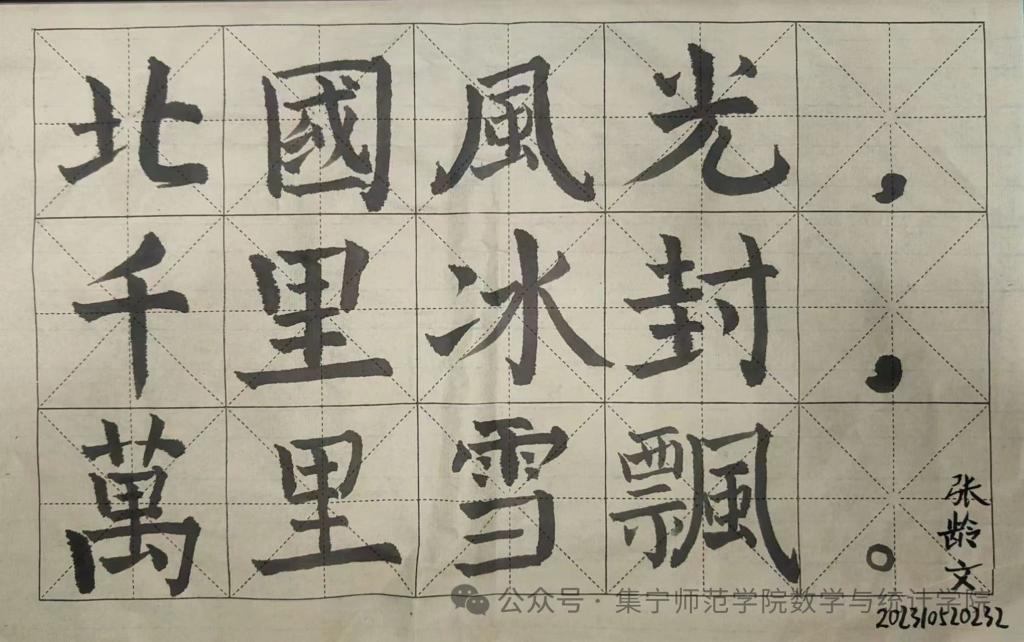 北國風光，
千里冰封，
萬里雪飄。
张龄文
202310520232
公众号·集宁师范学院数学与统计学院